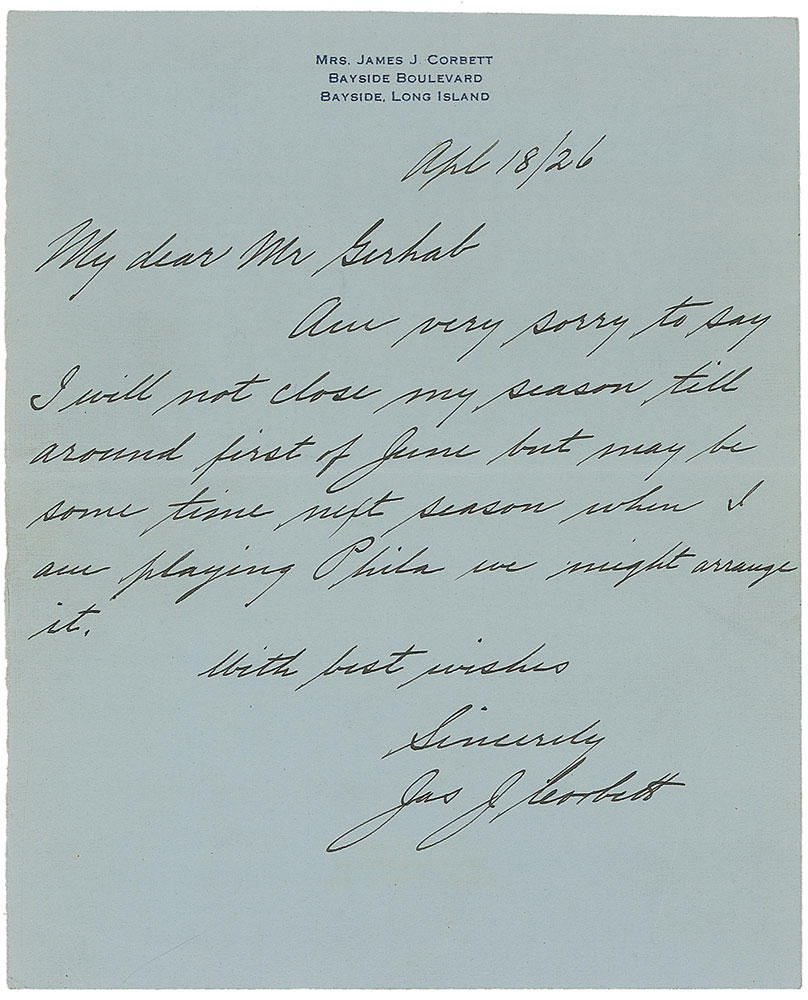 MRS. JAMES J CORBETT
BAYSIDE BOULEVARD
BAYSIDE, LONG ISLAND
Apl 18/26
My dear Mr Gerhab
Am very sorry to say
I will not close my season till
around first of June but may be
some time next season when I
am playing Phila we might arrange
it.
With best wishes
Sincerely
Jas J Corbett